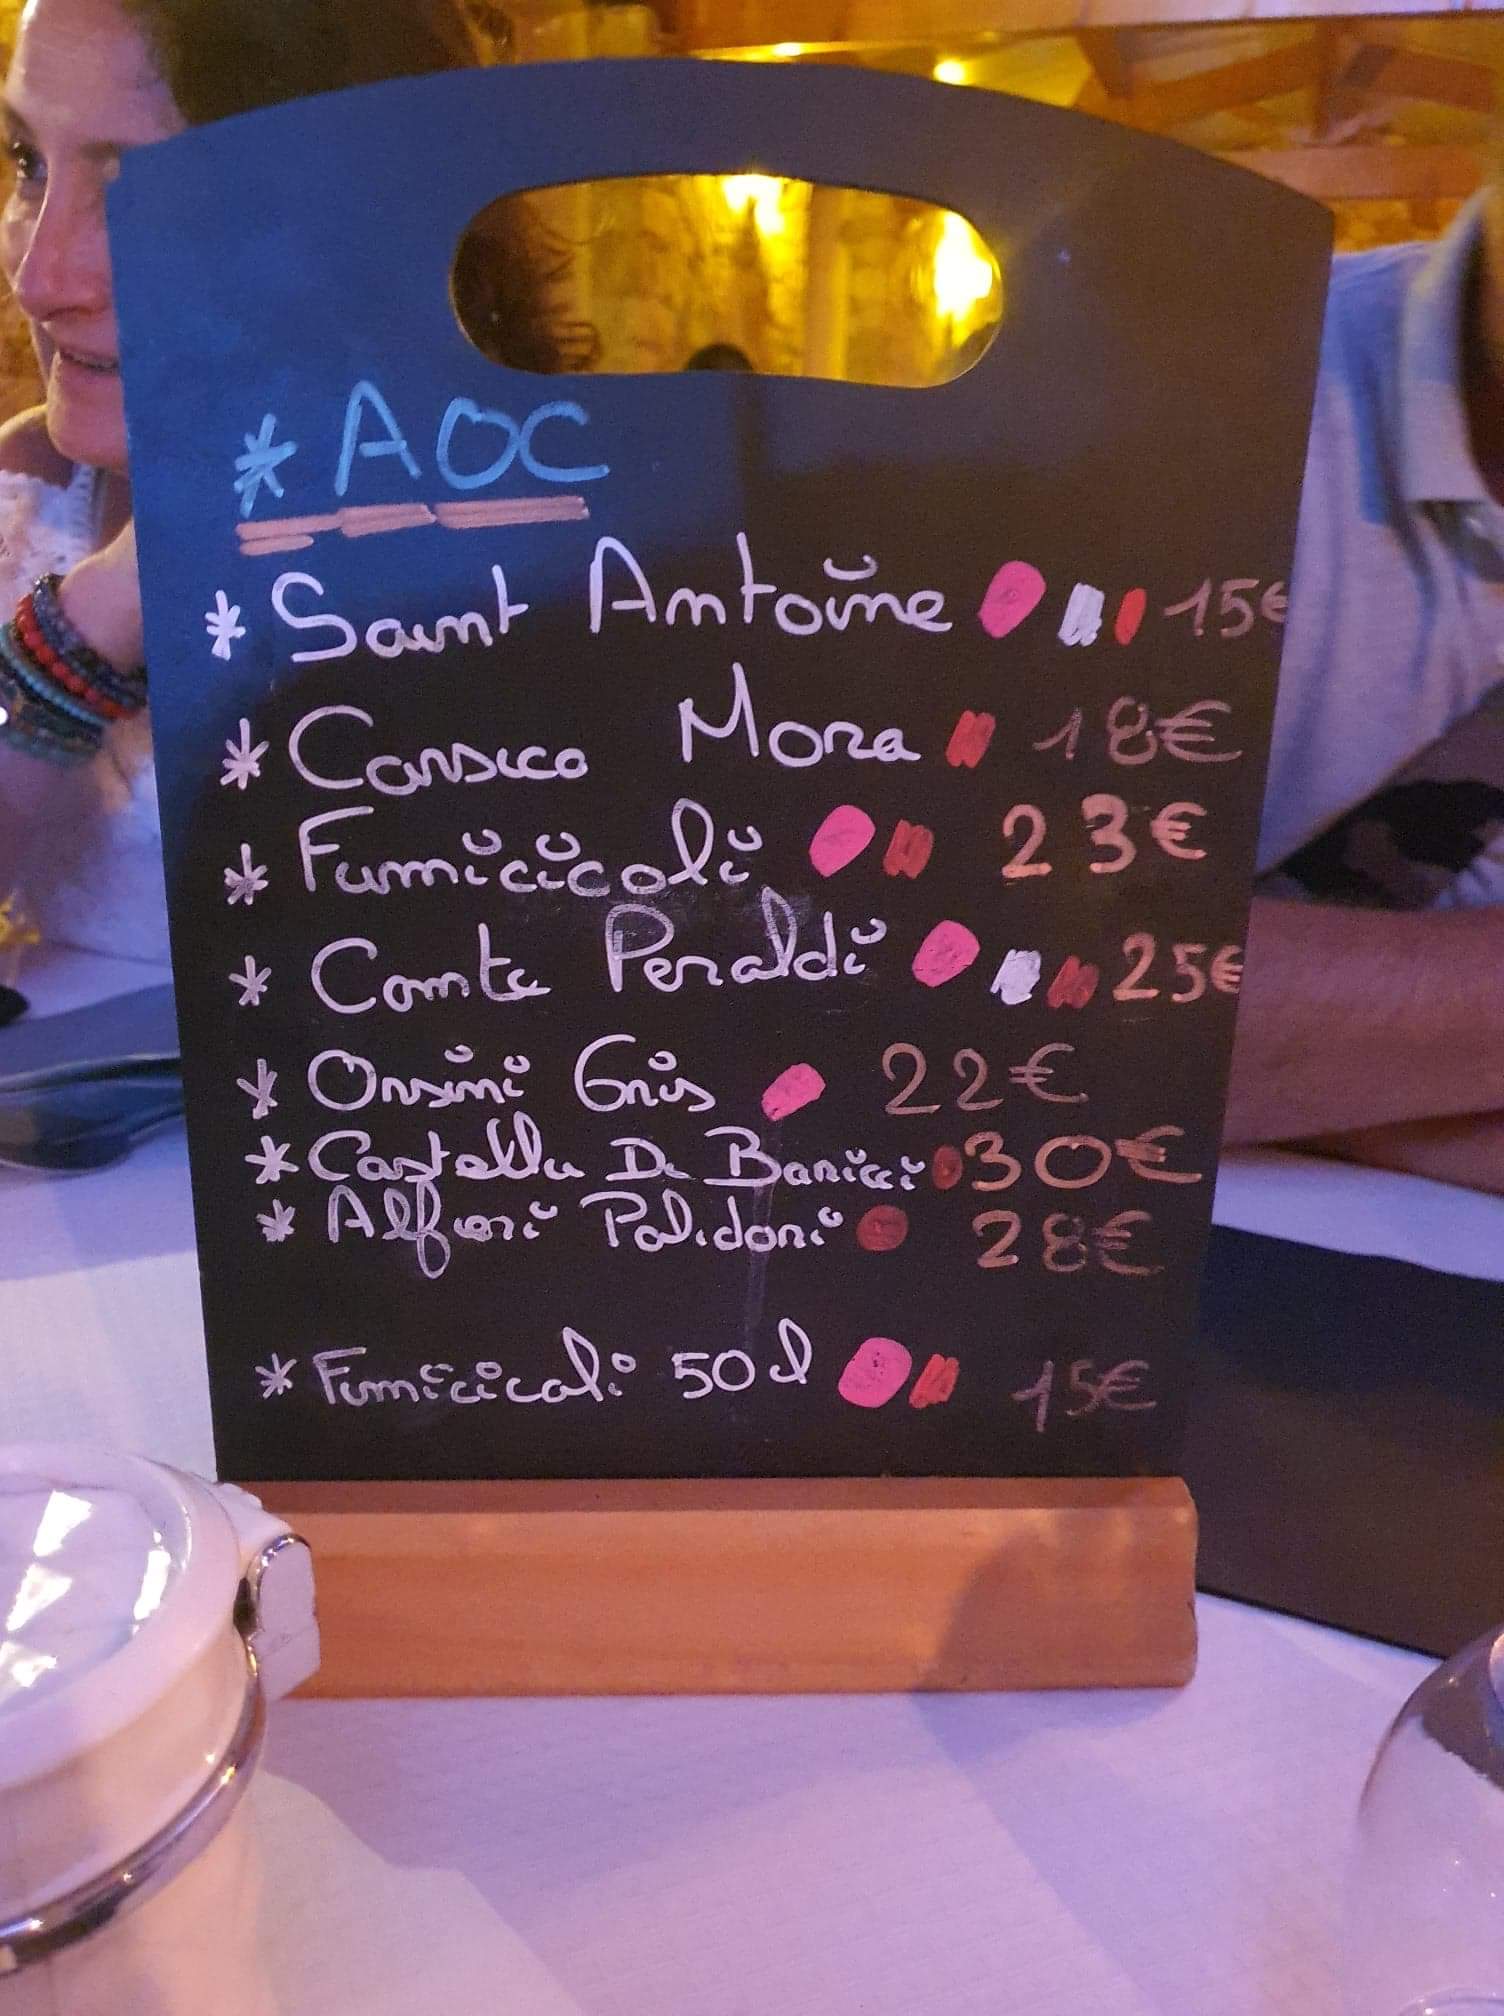 * AOC
* Saint Antoine 15€
* Corsica Mora 18€
* Fumicicoli 23€
* Comte Peraldi 25€
* Orsini Gris 22€
* Castellu Di Baricci 30€
* Alfieri Polidori 28€
* Fumicicoli 50 l 15€